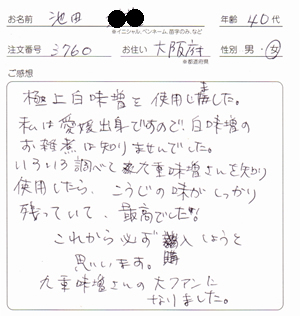 お名前 池田 年齢 40代
※イニシャル、ペンネーム、苗字のみ、など
注文番号 3760 お住い 大阪府 性別 男・女
※都道府県
ご感想
極上白味噌を使用しました。
私は愛媛出身ですので白味噌の
お雑煮は知りませんでした。
いろいろ調べて九重味噌さんを知り
使用したら、こうじの味がしっかり
残っていて、最高でした!!
これから必ず購入しようと
思います。
九重味噌さんの大ファンに
なりました。